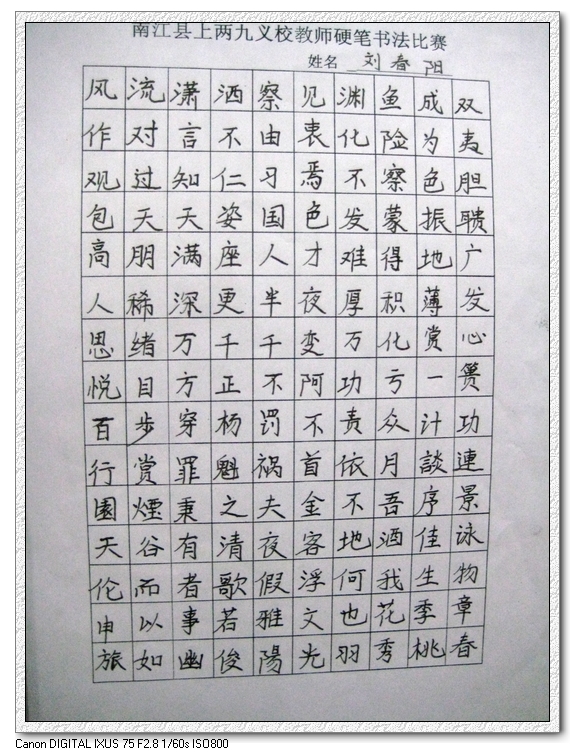 南江县上两九义校教师硬笔书法比赛
姓名 刘春阳
风流潇洒察见渊鱼成双
作对言不由衷化险为夷
观过知仁习焉不察色胆
包天天姿国色发蒙振聩
高朋满座人才难得地广
人稀深更半夜厚积薄发
思绪万千千变万化赏心
悦目方正不阿功亏一篑
百步穿杨罚不责众计功
行赏罪魁祸首依月談連
園煙秉之夫金不吾序景
天谷有清夜客地酒佳泳
伦而者歌假浮何我生物
申以事若雅文也花季章
旅如幽俊陽光羽秀桃春
Canon DIGITAL IXUS 75 F2.8 1/60s ISO800